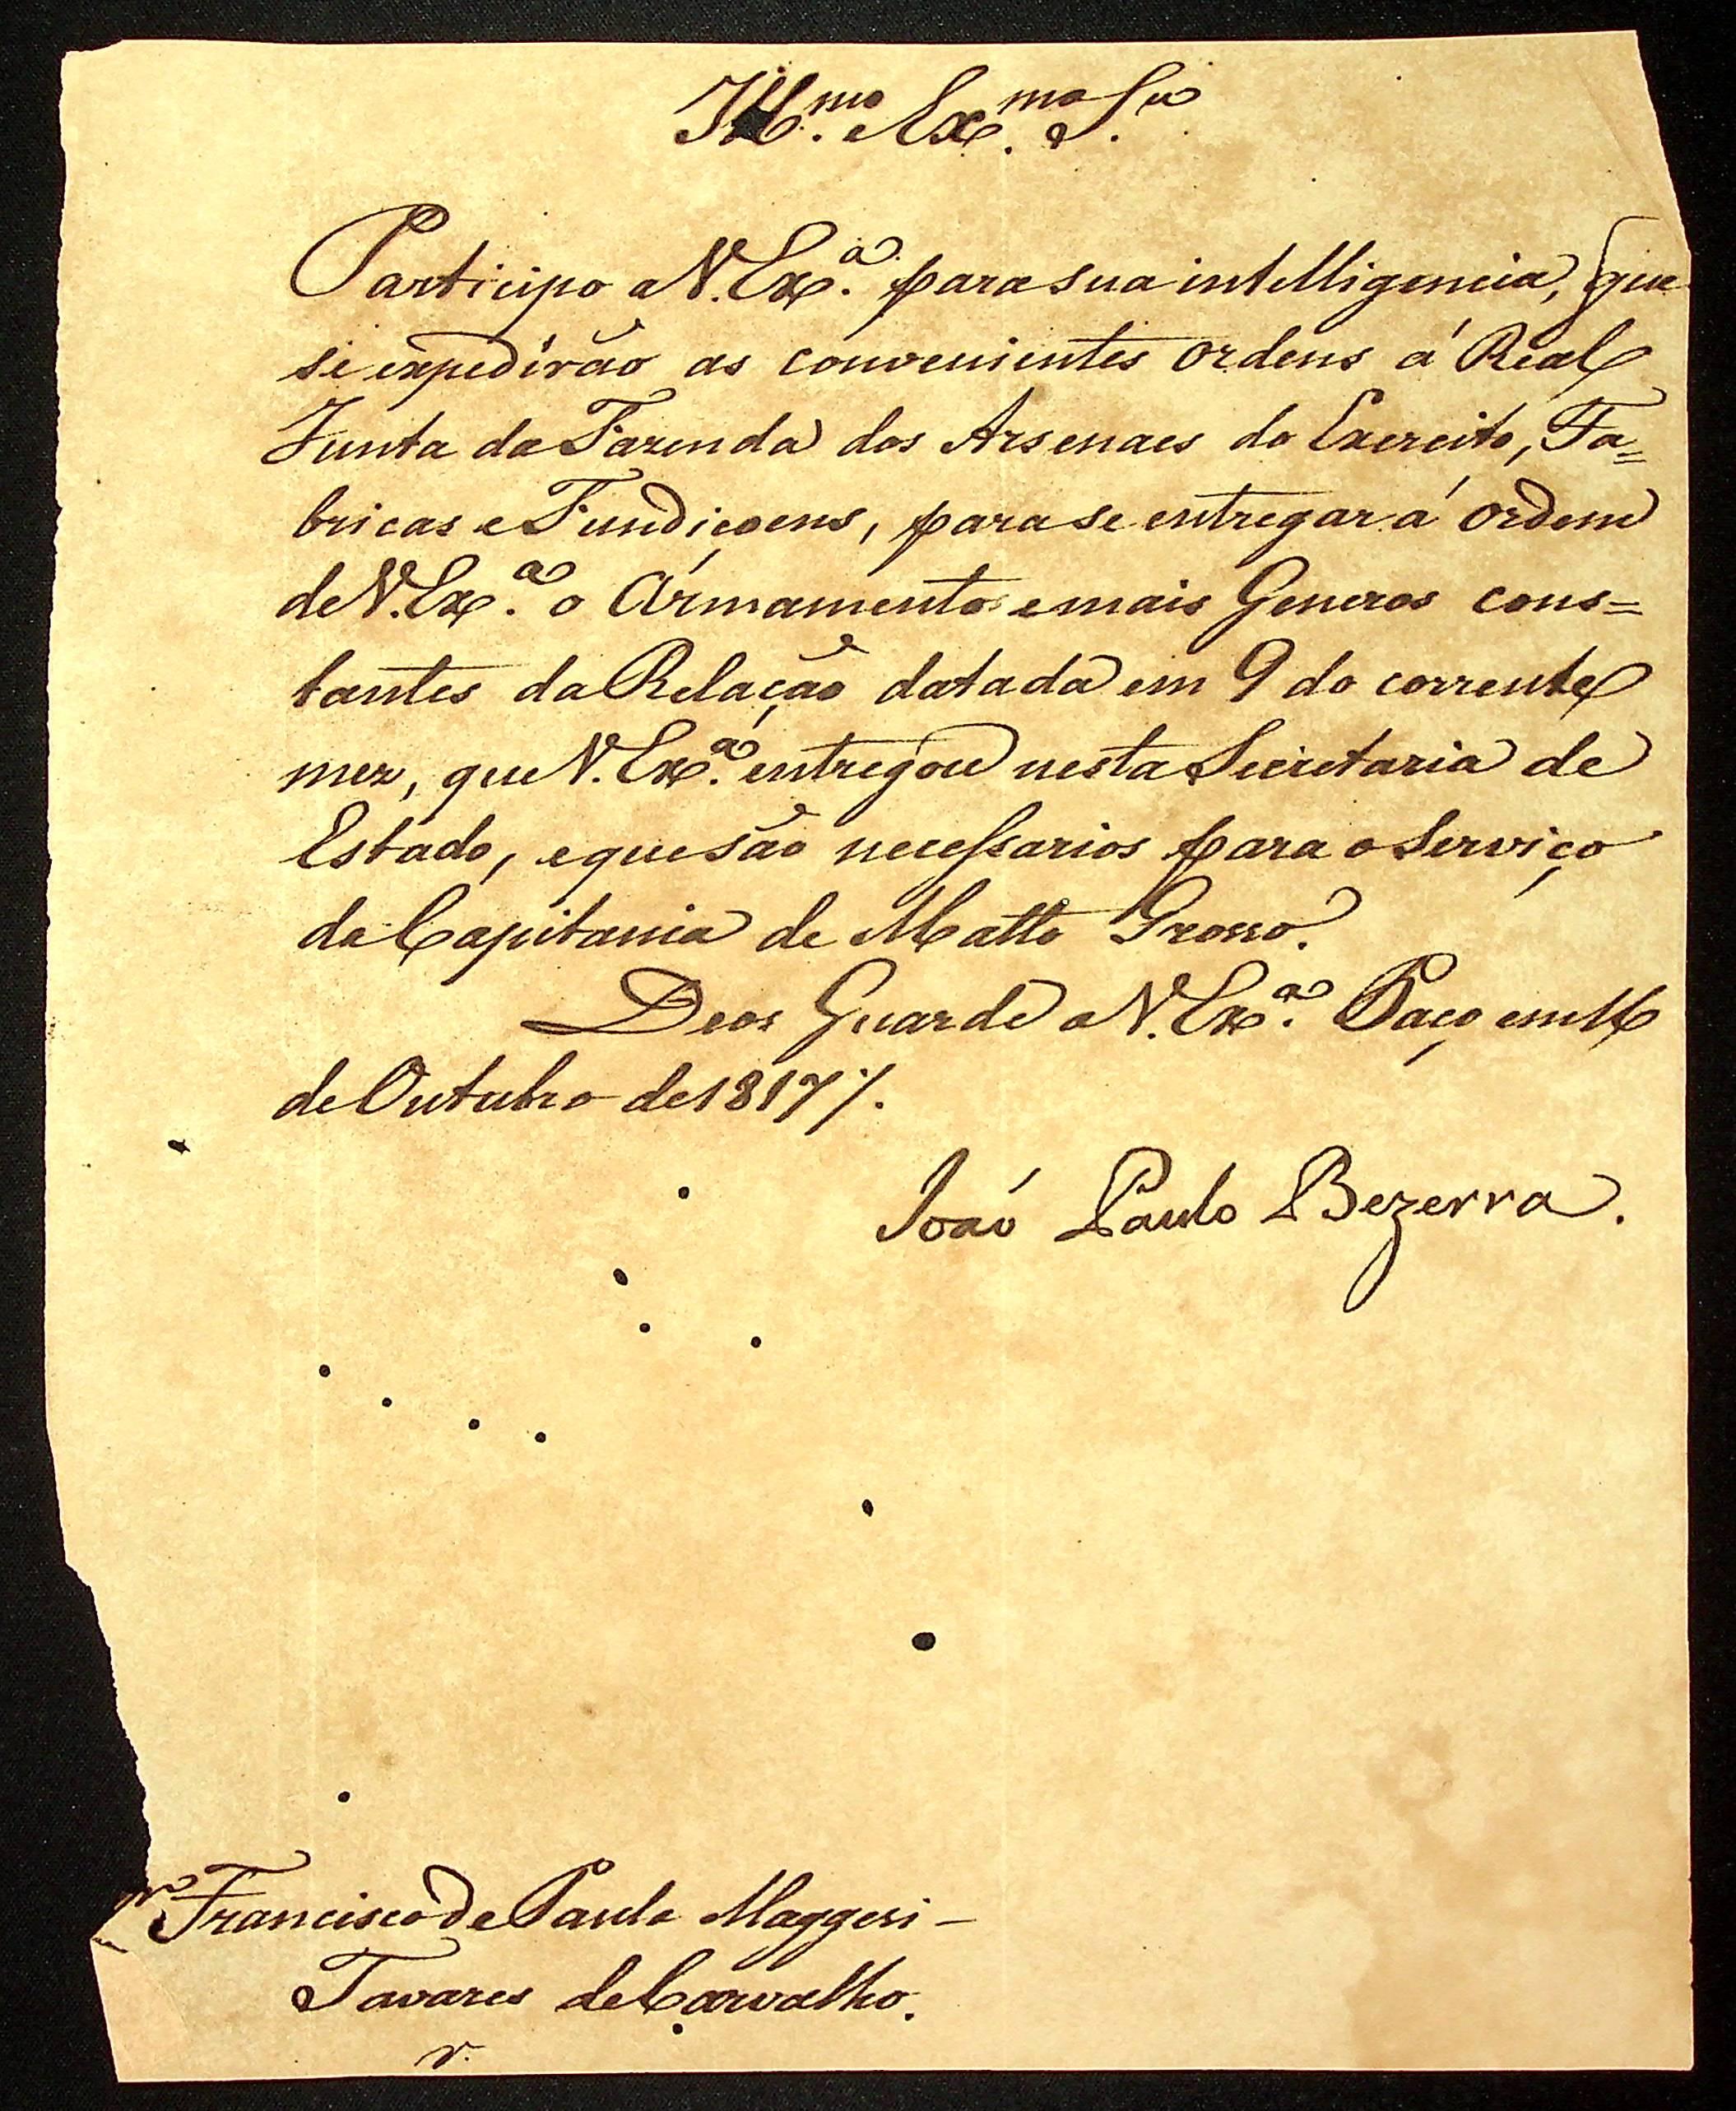 Ill.mo e Ex.mo Sr.
Participo a V. Ex.a para sua intelligencia, que
se expedirão as convenientes ordens á Real
Junta da Fazenda dos Arsenaes do Exercito, Fa=
bricas e Fundiçoens, para se entregar á ordem
de V. Ex.a o Armamento e mais Generos cons=
tantes da Relação datada em 9 do corrente
mez, que V. Ex.a entregou nesta Secretaria de
Estado, e que são necessarios para o Serviço
da Capitania de Matto Grosso.
Deos Guarde a V. Ex.a Paço em 16
de Outubro de 1817.
João Paulo Bezerra.
Francisco de Paula Maggesi -
Tavares de Carvalho.